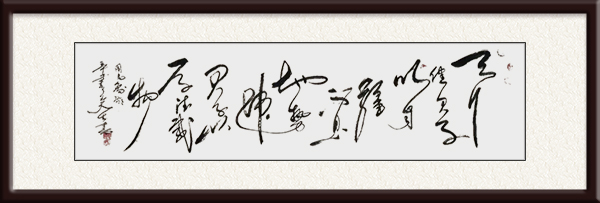 天行
健君子
以自
强
不息
地势
坤
君子以
厚德载
物